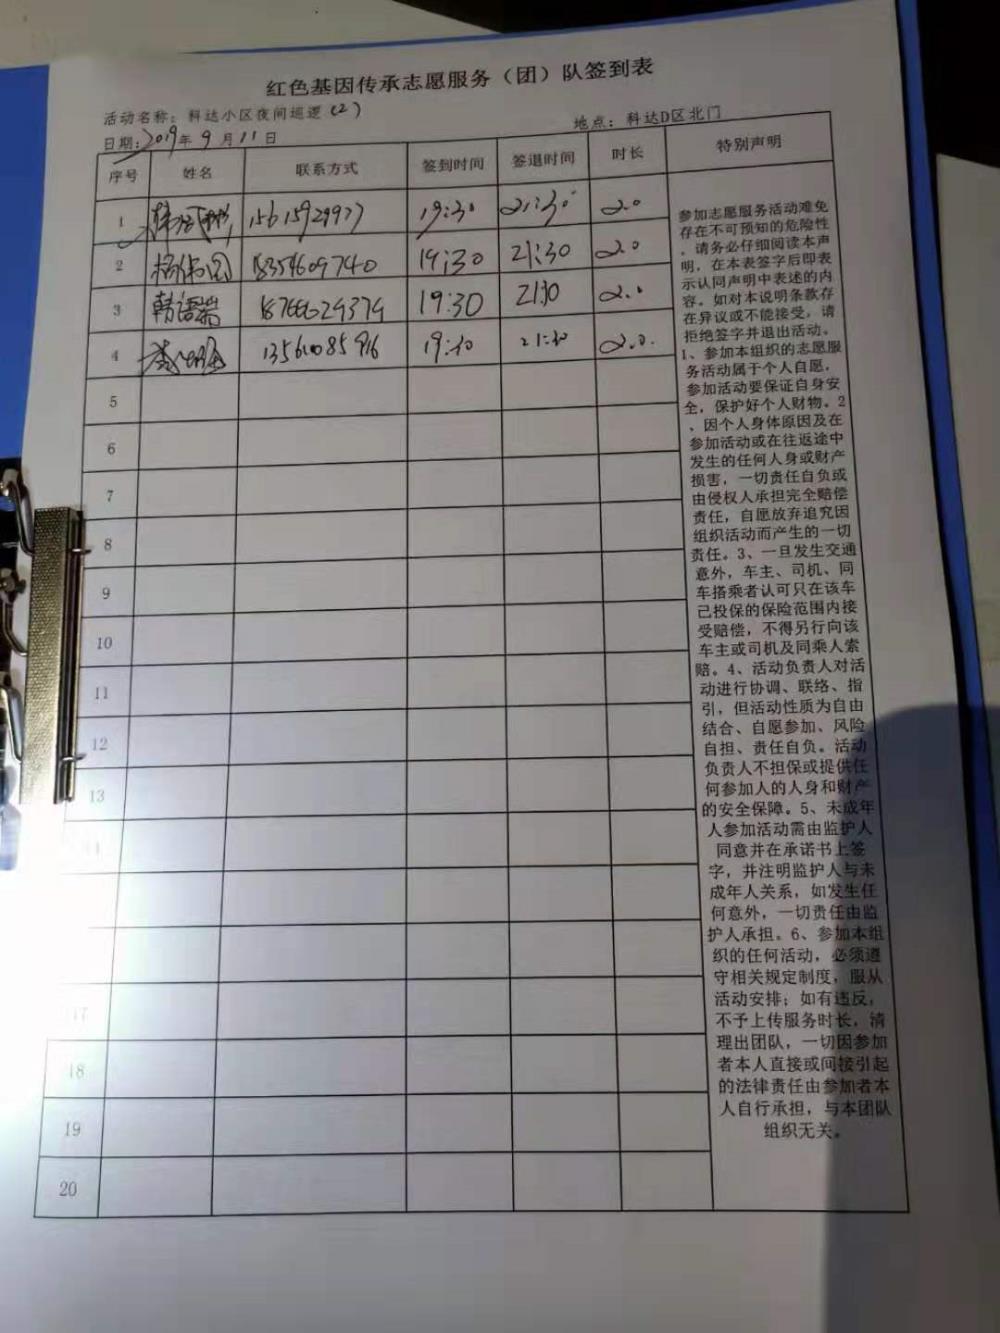 红色基因传承志愿服务（团）队签到表
活动名称：科达小区夜间巡逻（2）
地点：科达D区北门
日期：2019年9月11日
序号 姓名 联系方式 签到时间 签退时间 时长 特别声明
1 19:30 21:30 2.0
2 18354609740 19:30 21:30 2.0
3 韩语 19:30 2.0
4 19:30 21:30 2.0.
5
6
7
8
9
10
11
12
13
17
18
19
20
参加志愿服务活动难免
存在不可预知的危险性
，请务必仔细阅读本声
明，在本表签字后即表
示认同声明中表述的内
容。如对本说明条款存
在异议或不能接受，请
拒绝签字并退出活动。
1、参加本组织的志愿服
务活动属于个人自愿，
参加活动要保证自身安
全，保护好个人财物。2
、因个人身体原因及在
参加活动或在往返途中
发生的任何人身或财产
损害，一切责任自负或
由侵权人承担完全赔偿
责任，自愿放弃追究因
组织活动而产生的一切
责任。3、一旦发生交通
意外，车主、司机、同
车搭乘者认可只在该车
已投保的保险范围内接
受赔偿，不得另行向该
车主或司机及同乘人索
赔。4、活动负责人对活
动进行协调、联络、指
引，但活动性质为自由
结合、自愿参加、风险
自担、责任自负。活动
负责人不担保或提供任
何参加人的人身和财产
的安全保障。5、未成年
人参加活动需由监护人
同意并在承诺书上签
字，并注明监护人与未
成年人关系，如发生任
何意外，一切责任由监
护人承担。6、参加本组
织的任何活动，必须遵
守相关规定制度，服从
活动安排；如有违反，
不予上传服务时长，清
理出团队，一切因参加
者本人直接或间接引起
的法律责任由参加者本
人自行承担，与本团队
组织无关。